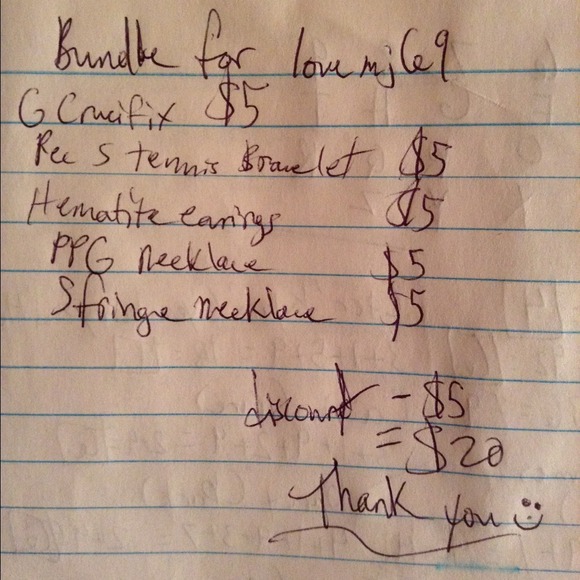 Bundle for lovemj69
G Crucifix $5
Rec S tennis Bracelet $5
Hematite earings $5
PPG necklace $5
S fringe necklace $5
discount - $5
= $20
Thank you :)